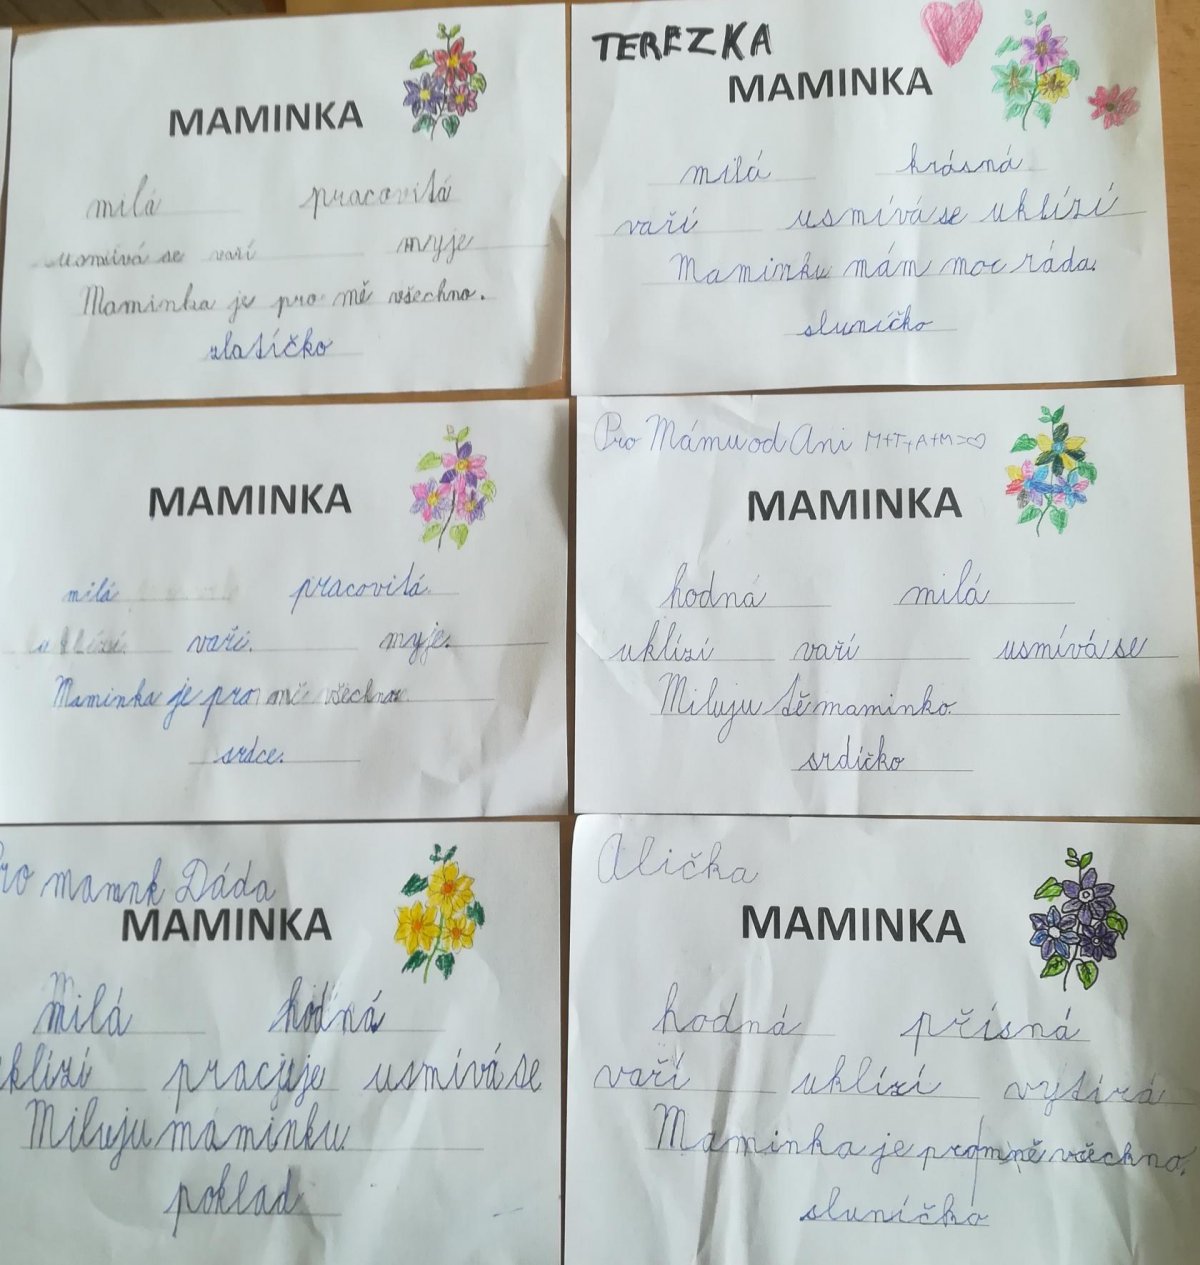 MAMINKA
milá pracovitá
usmívá se vaří myje
Maminka je pro mě všechno.
zlatíčko
TEREZKA
MAMINKA
milá krásná
vaří usmívá se uklízí
Maminku mám moc ráda.
sluníčko
MAMINKA
milá pracovitá
uklízí. vaří. myje.
Maminka je pro mě všechno.
srdce.
Pro Mámu od Ani M+T+A+M=♡
MAMINKA
hodná milá
uklízí vaří usmívá se
Miluju tě maminko.
srdíčko
Pro mamnk Dáda
MAMINKA
Milá hodná
uklízí pracjuje usmívá se
Miluju maminku
poklad
Alička
MAMINKA
hodná přísná
vaří uklízí vytírá
Maminka je pro mně všechno.
sluníčko